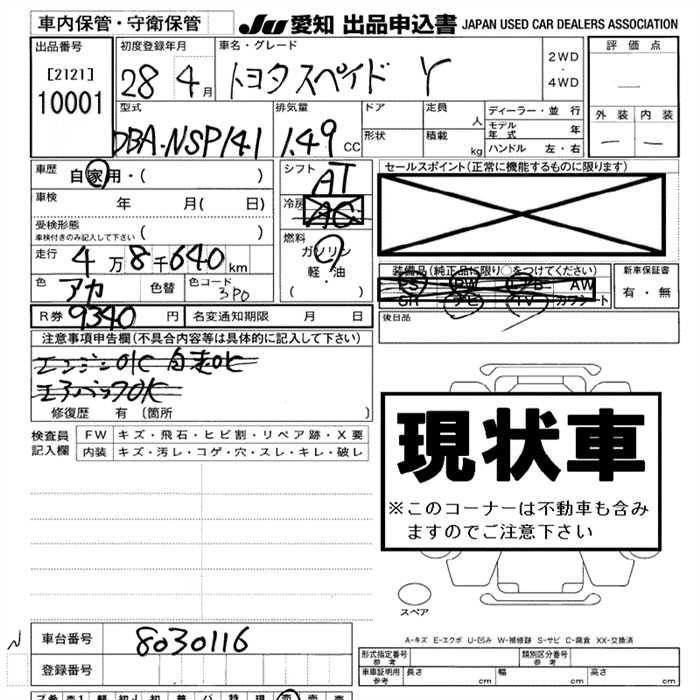 車内保管・守衛保管
JU 愛知 出品申込書 JAPAN USED CAR DEALERS ASSOCIATION
出品番号
[2121]
10001
初度登録年月
28 4月
車名・グレード
トヨタスペイド Y
2WD
・
4WD
評価点
外装 内装
型式
DBA-NSP141
排気量
1.49 CC
ドア
形状
定員 人
積載 kg
ディーラー・並行
モデル年式 年
ハンドル 左・右
車歴
自家用・( )
車検 年 月( 日)
受検形態
車検付きのみ記入して下さい ( )
走行 4万8千640km
色 アカ 色替 色コード 3P0
R券 9340 円 名変通知期限 月 日
シフト AT
冷房 AC
燃料
ガソリン
軽・油
( )
セールスポイント(正常に機能するものに限ります)
装備品(純正品に限り○をつけてください)
PS PW エアB AW
SR ナビ TV カワシート
新車保証書
有・無
後日品
注意事項申告欄(不具合内容等は具体的に記入して下さい)
エンジンOK 自走OK
エアバックOK
修復歴 有 〔箇所 〕
検査員記入欄
FW キズ・飛石・ヒビ割・リペア跡・X要
内装 キズ・汚レ・コゲ・穴・スレ・キレ・破レ
現状車
※このコーナーは不動車も含み
ますのでご注意下さい
スペア
A-キズ E-エクボ U-凹み W-補修跡 S-サビ C-腐食 XX-交換済
車台番号 8030116
登録番号
形式指定番号 参考
類別区分番号 参考
車車証明用 参考 長さ cm 幅 cm 高さ cm